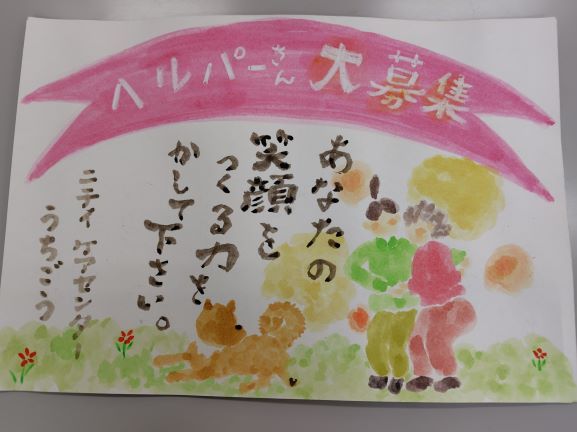 ヘルパーさん大募集
あなたの
笑顔を
つくる力を
かして下さい。
ニチイケアセンター
うちごう